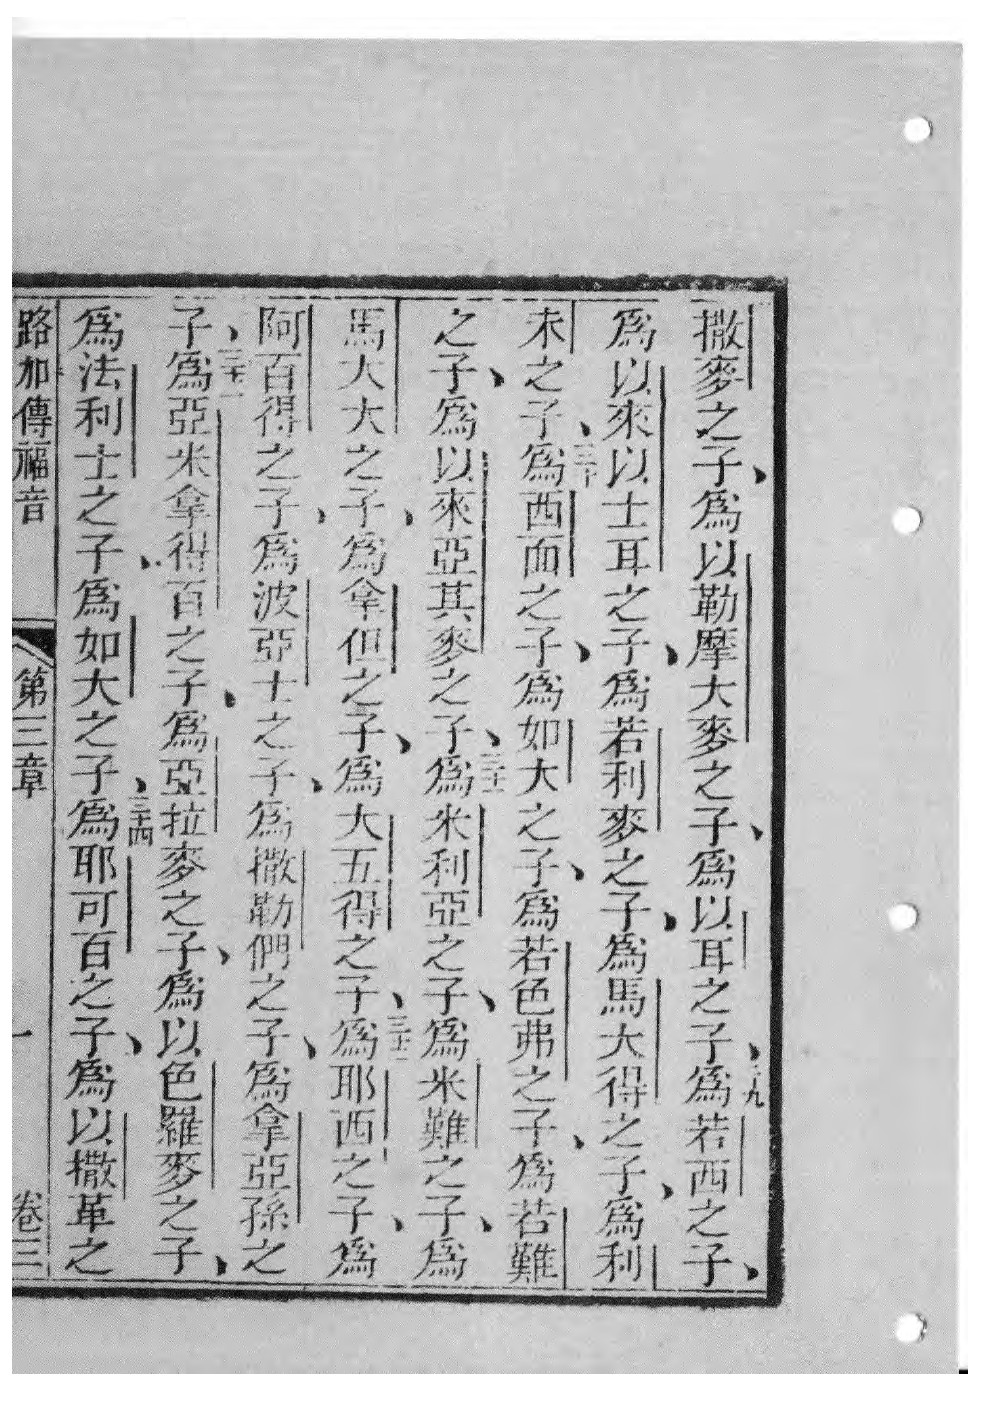 撒麥之子、爲以勒摩大麥之子、爲以耳之子、二十九爲若西之子、
爲以來以士耳之子、爲若利麥之子、爲馬大得之子、爲利
未之子、三十爲西面之子、爲如大之子、爲若色弗之子、爲若難
之子、爲以來亞其麥之子、三十一爲米利亞之子、爲米難之子、爲
馬大大之子、爲拿但之子、爲大五得之子、三十二爲耶西之子、爲
阿百得之子、爲波亞士之子、爲撒勒們之子、爲拿亞孫之
子、三十三爲亞米拿得百之子、爲亞拉麥之子、爲以色羅麥之子、
爲法利士之子、爲如大之子、三十四爲耶可百之子、爲以撒革之
路加傳福音 第三章 一 卷三